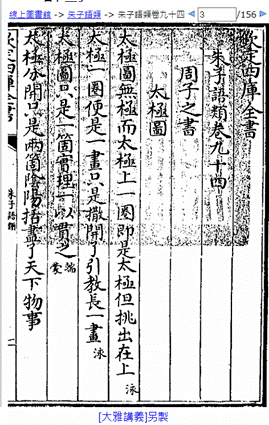 線上圖書館 -> 朱子語類 -> 朱子語類卷九十四 3 /156
欽定四庫全書
朱子語類卷九十四
周子之書
太極圖
太極圖無極而太極上一圈即是太極但挑出在上 泳
太極一圈便是一畫只是撒開了引教長一畫 泳
太極圖只是一箇實理一以貫之 端蒙
太極分開只是兩箇陰陽括盡了天下物事
朱子語類
[大雅講義]另製